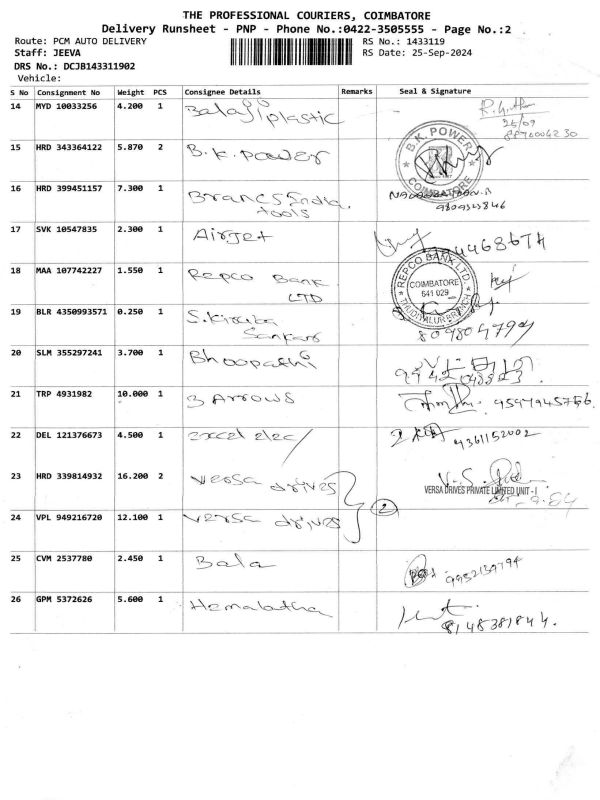 THE PROFESSIONAL COURIERS, COIMBATORE
Delivery Runsheet - PNP - Phone No.:0422-3505555 - Page No.:2
Route: PCM AUTO DELIVERY RS No.: 1433119
Staff: JEEVA RS Date: 25-Sep-2024
DRS No.: DCJB143311902
Vehicle:
S No Consignment No Weight PCS Consignee Details Remarks Seal & Signature
14 MYD 10033256 4.200 1 Balaji plastic
25/09
15 HRD 343364122 5.870 2 B.K. Power
B.K. POWER
COIMBATORE
16 HRD 399451157 7.300 1 India tools
17 SVK 10547835 2.300 1 Airjet
18 MAA 107742227 1.550 1 Repco Bank LTD
REPCO BANK LTD
COIMBATORE
641 029
19 BLR 4350993571 0.250 1 S.
8098047974
20 SLM 355297241 3.700 1 Bhoopathi
21 TRP 4931982 10.000 1 3 Arrows 9597945756
22 DEL 121376673 4.500 1 excel elec 9361152002
23 HRD 339814932 16.200 2 versa drives
VERSA DRIVES PRIVATE LIMITED UNIT - I
2
24 VPL 949216720 12.100 1 versa drives
25 CVM 2537780 2.450 1 Bala 9952139794
26 GPM 5372626 5.600 1 Hemalatha
8148381844.